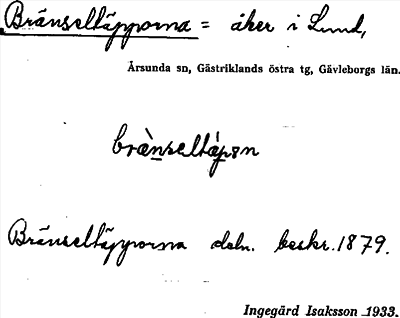 Bränseltäpporna = åker i Lund,
Årsunda sn, Gästriklands östra tg, Gävleborgs län.
brànseltápɘn
Bränseltäpporna dsbn. beskr. 1879.
Ingegärd Isaksson 1933.